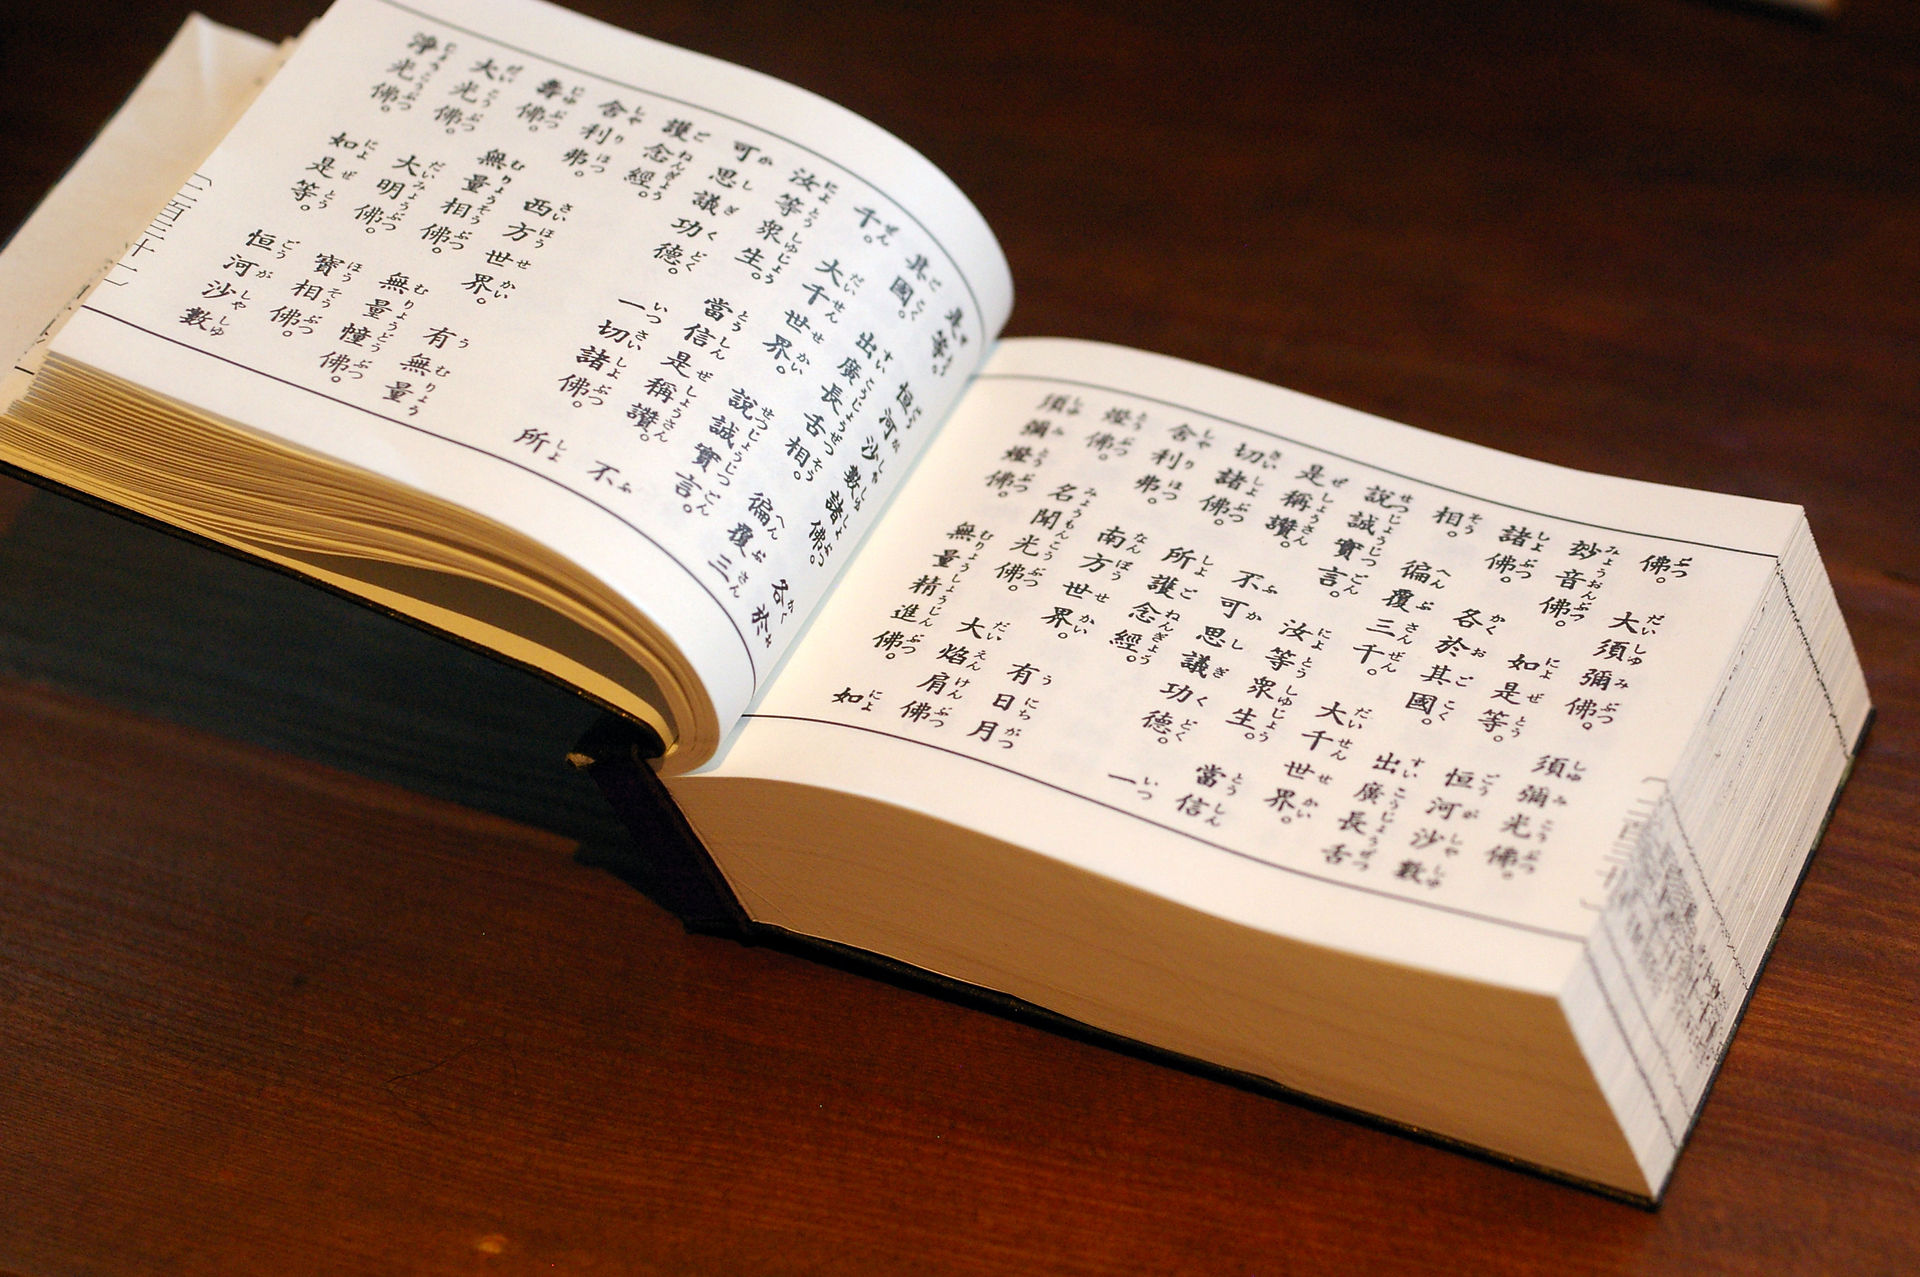 佛。大須彌佛。須彌光佛。
妙音佛。如是等。恒河沙數
諸佛。各於其國。出廣長舌
相。偏覆三千。大千世界。
說誠實言。汝等衆生。當信
是稱讚。不可思議功德。一
切諸佛。所護念經。
舍利弗。南方世界。有日月
燈佛。名聞光佛。大焰肩佛
須彌燈佛。無量精進佛。如
〔二百三十〕
是等。恒河沙數諸佛。各於
其國。出廣長舌相。偏覆三
千。大千世界。說誠實言。
汝等衆生。當信是稱讚。不
可思議功德。一切諸佛。所
護念經。
舍利弗。西方世界。有無量
壽佛。無量相佛。無量幢佛。
大光佛。大明佛。寶相佛。
淨光佛。如是等。恒河沙數
〔二百三十一〕